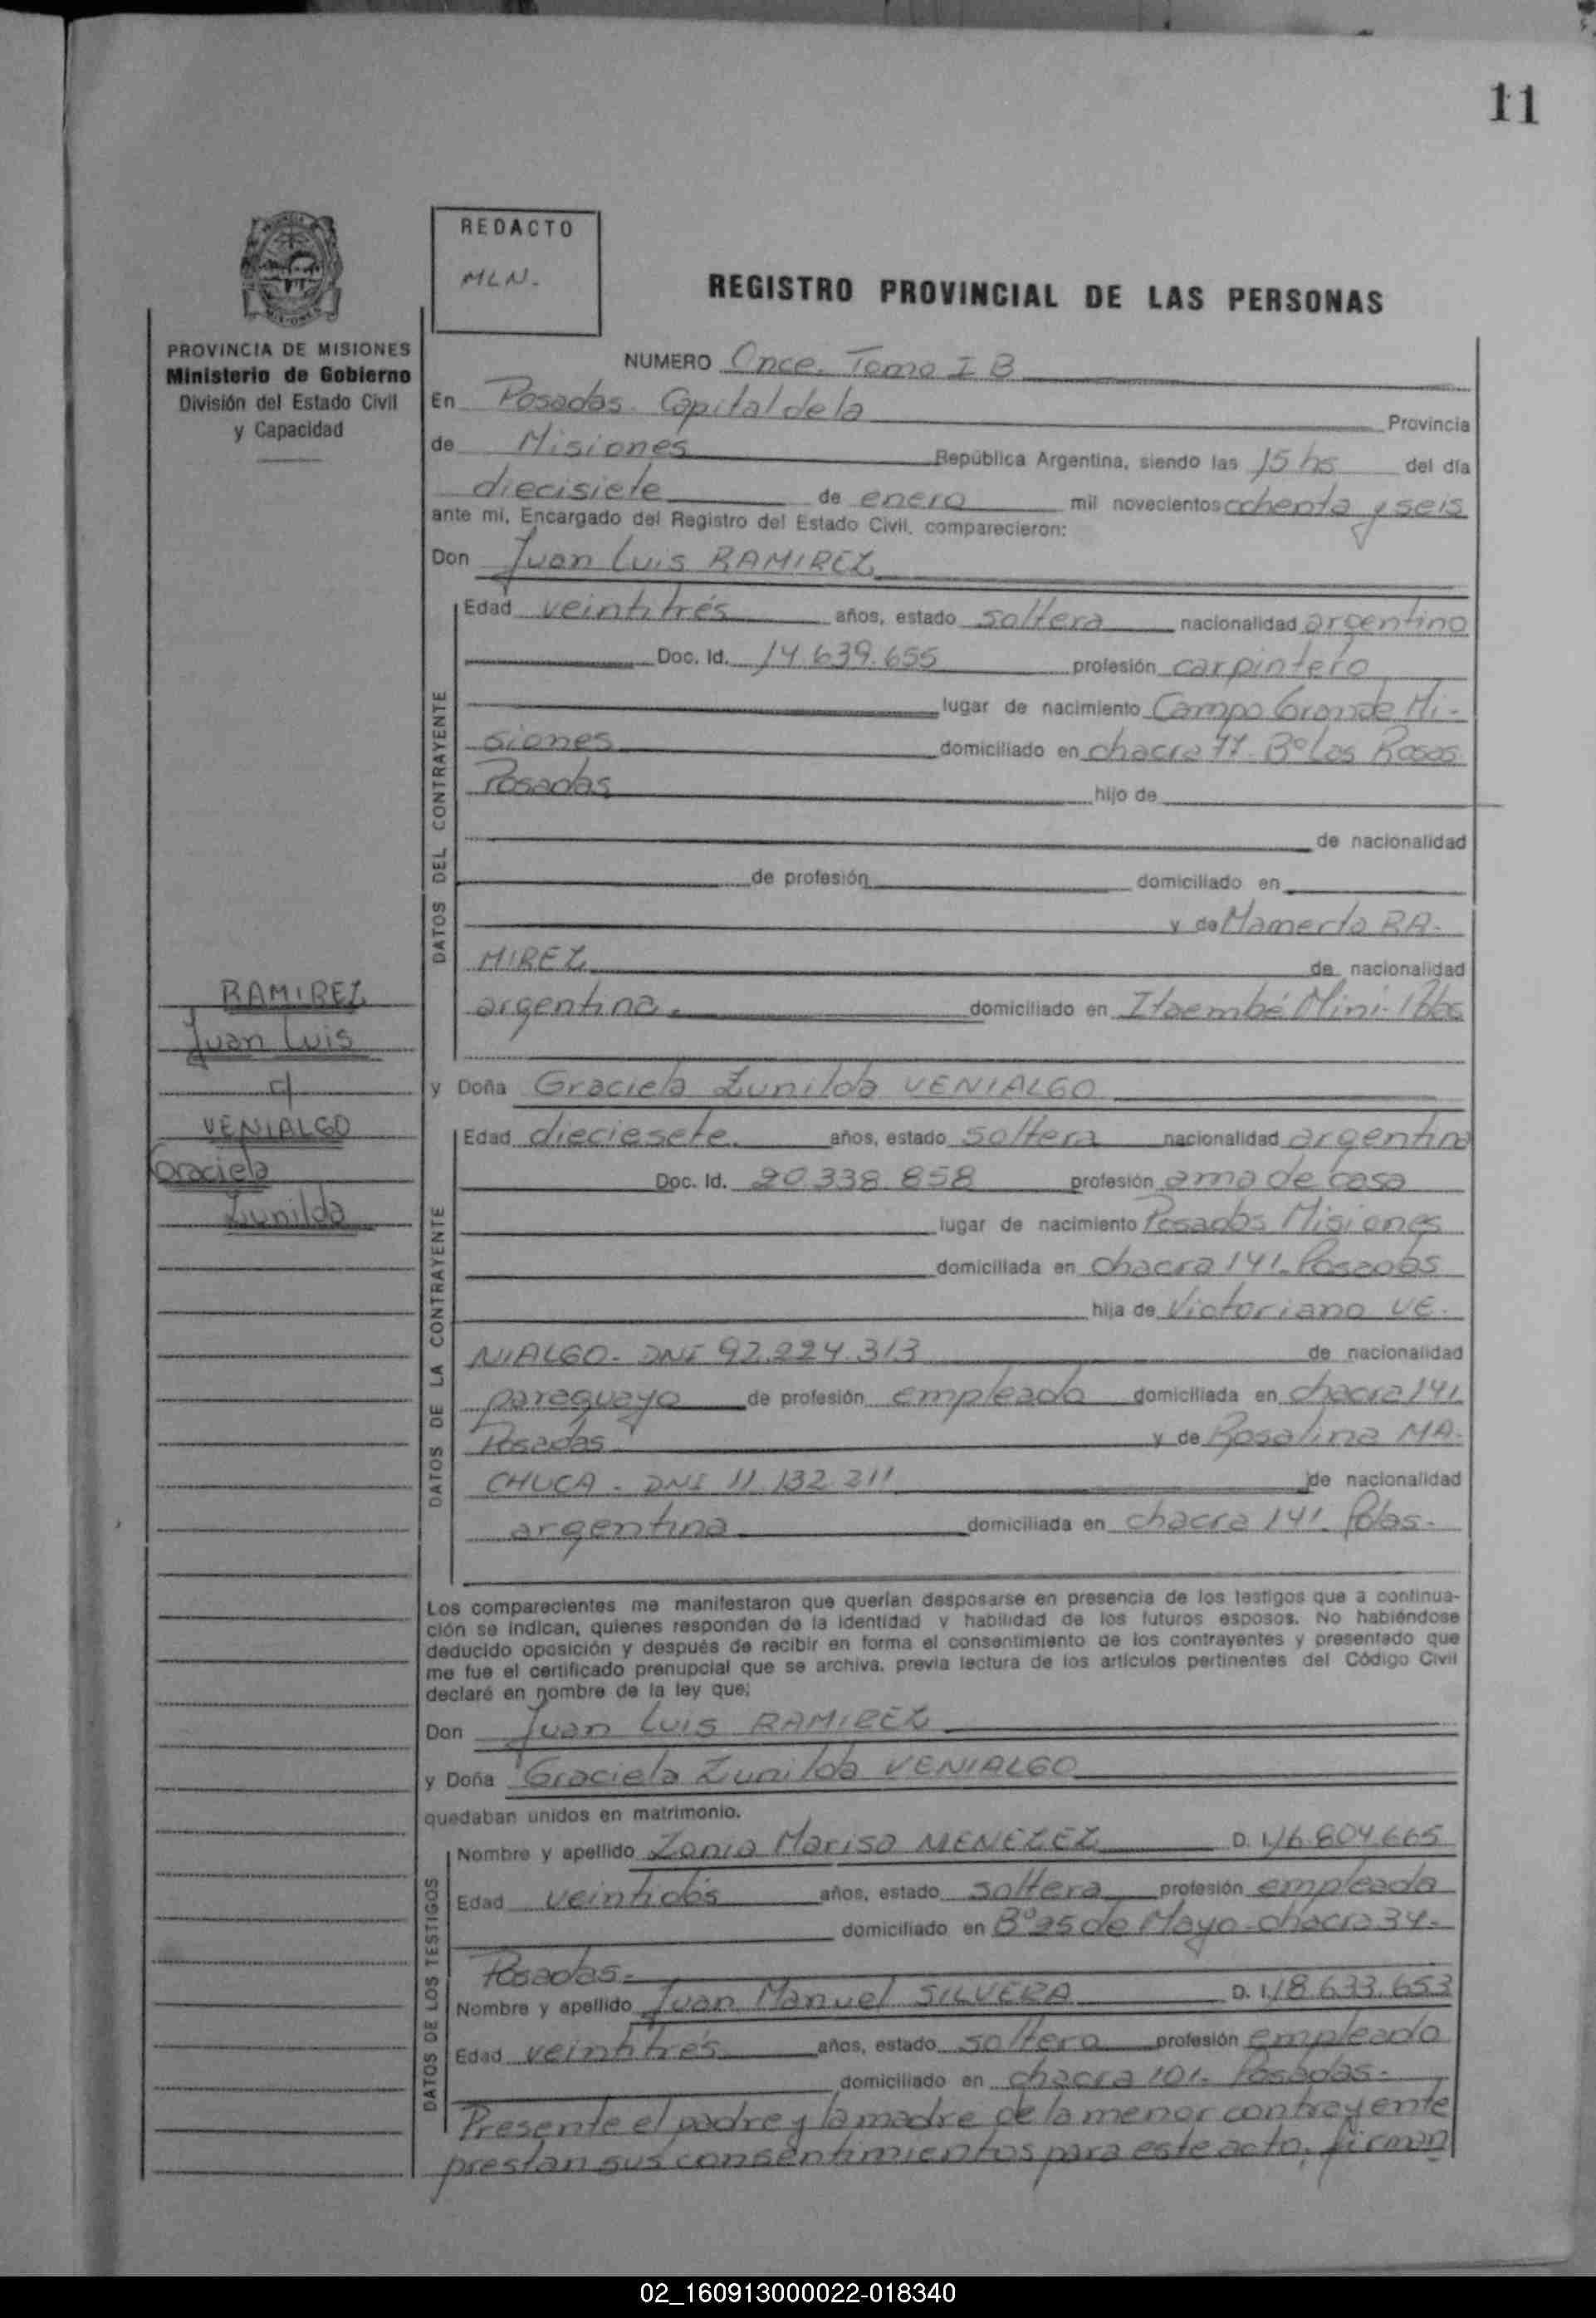 11
REDACTO
MLN.
REGISTRO PROVINCIAL DE LAS PERSONAS
PROVINCIA DE MISIONES
Ministerio de Gobierno
División del Estado Civil
y Capacidad
NUMERO Once. Tomo I B
En Posadas. Capital de la Provincia
de Misiones República Argentina, siendo las 15 hs del día
diecisiete de enero mil novecientos ochenta y seis
ante mi, Encargado del Registro del Estado Civil, comparecieron:
Don Juan Luis RAMIREZ
DATOS DEL CONTRAYENTE
Edad veintitrés años, estado soltero nacionalidad argentino
Doc. Id. 14.639.655 profesión carpintero
lugar de nacimiento Campo Grande Mi-
siones domiciliado en chacra 77. Bº Las Rosas
Posadas hijo de
de nacionalidad
de profesión domiciliado en
y de Mamerta RA-
MIREZ de nacionalidad
argentina. domiciliado en Itaembé Mini. Pdas
RAMIREZ
Juan Luis
c/
VENIALGO
Graciela
Zunilda
y Doña Graciela Zunilda VENIALGO
DATOS DE LA CONTRAYENTE
Edad dieciesete. años, estado soltera nacionalidad argentina
Doc. Id. 20.338.858 profesión ama de casa
lugar de nacimiento Posadas Misiones
domiciliada en chacra 141. Posadas
hija de Victoriano VE-
NIALGO. DNI 92.224.313 de nacionalidad
paraguayo de profesión empleado domiciliada en chacra 141
Posadas y de Rosalina MA-
CHUCA. DNI 11.132.211 de nacionalidad
argentina domiciliada en chacra 141. Pdas.
Los comparecientes me manifestaron que querían desposarse en presencia de los testigos que a continua-
ción se indican, quienes responden de la identidad y habilidad de los futuros esposos. No habiéndose
deducido oposición y después de recibir en forma el consentimiento de los contrayentes y presentado que
me fue el certificado prenupcial que se archiva, previa lectura de los artículos pertinentes del Código Civil
declaré en nombre de la ley que:
Don Juan Luis RAMIREZ
y Doña Graciela Zunilda VENIALGO
quedaban unidos en matrimonio.
DATOS DE LOS TESTIGOS
Nombre y apellido Zonia Marisa MENEZEZ D. I. 16.804.665
Edad veintidós años, estado soltera profesión empleada
domiciliado en Bº 25 de Mayo. chacra 34.
Posadas.
Nombre y apellido Juan Manuel SILVERA D. I. 18.633.653
Edad veintitrés años, estado soltero profesión empleado
domiciliado en chacra 101. Posadas.
Presente el padre y la madre de la menor contrayente
prestan sus consentimientos para este acto, firman
02_160913000022-018340